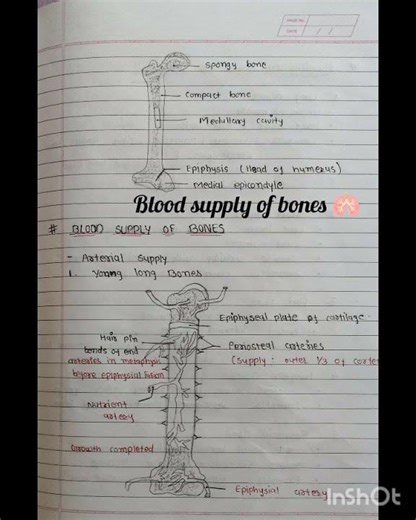 PAGE NO.
DATE / /
spongy bone
compact bone
Medullary cavity
Epiphysis (Head of humerus)
medial epicondyle
Blood supply of bones
# BLOOD SUPPLY OF BONES
- Arterial supply
1. Young long Bones
Epiphyseal plate of cartilage
Hair pin
bends of end
arteries in metaphysis
before epiphysial fusion
Periosteal
(Supply: outer 1/3 of cortex
Nutrient
artery
Growth completed
Epiphysial artery
InShOt